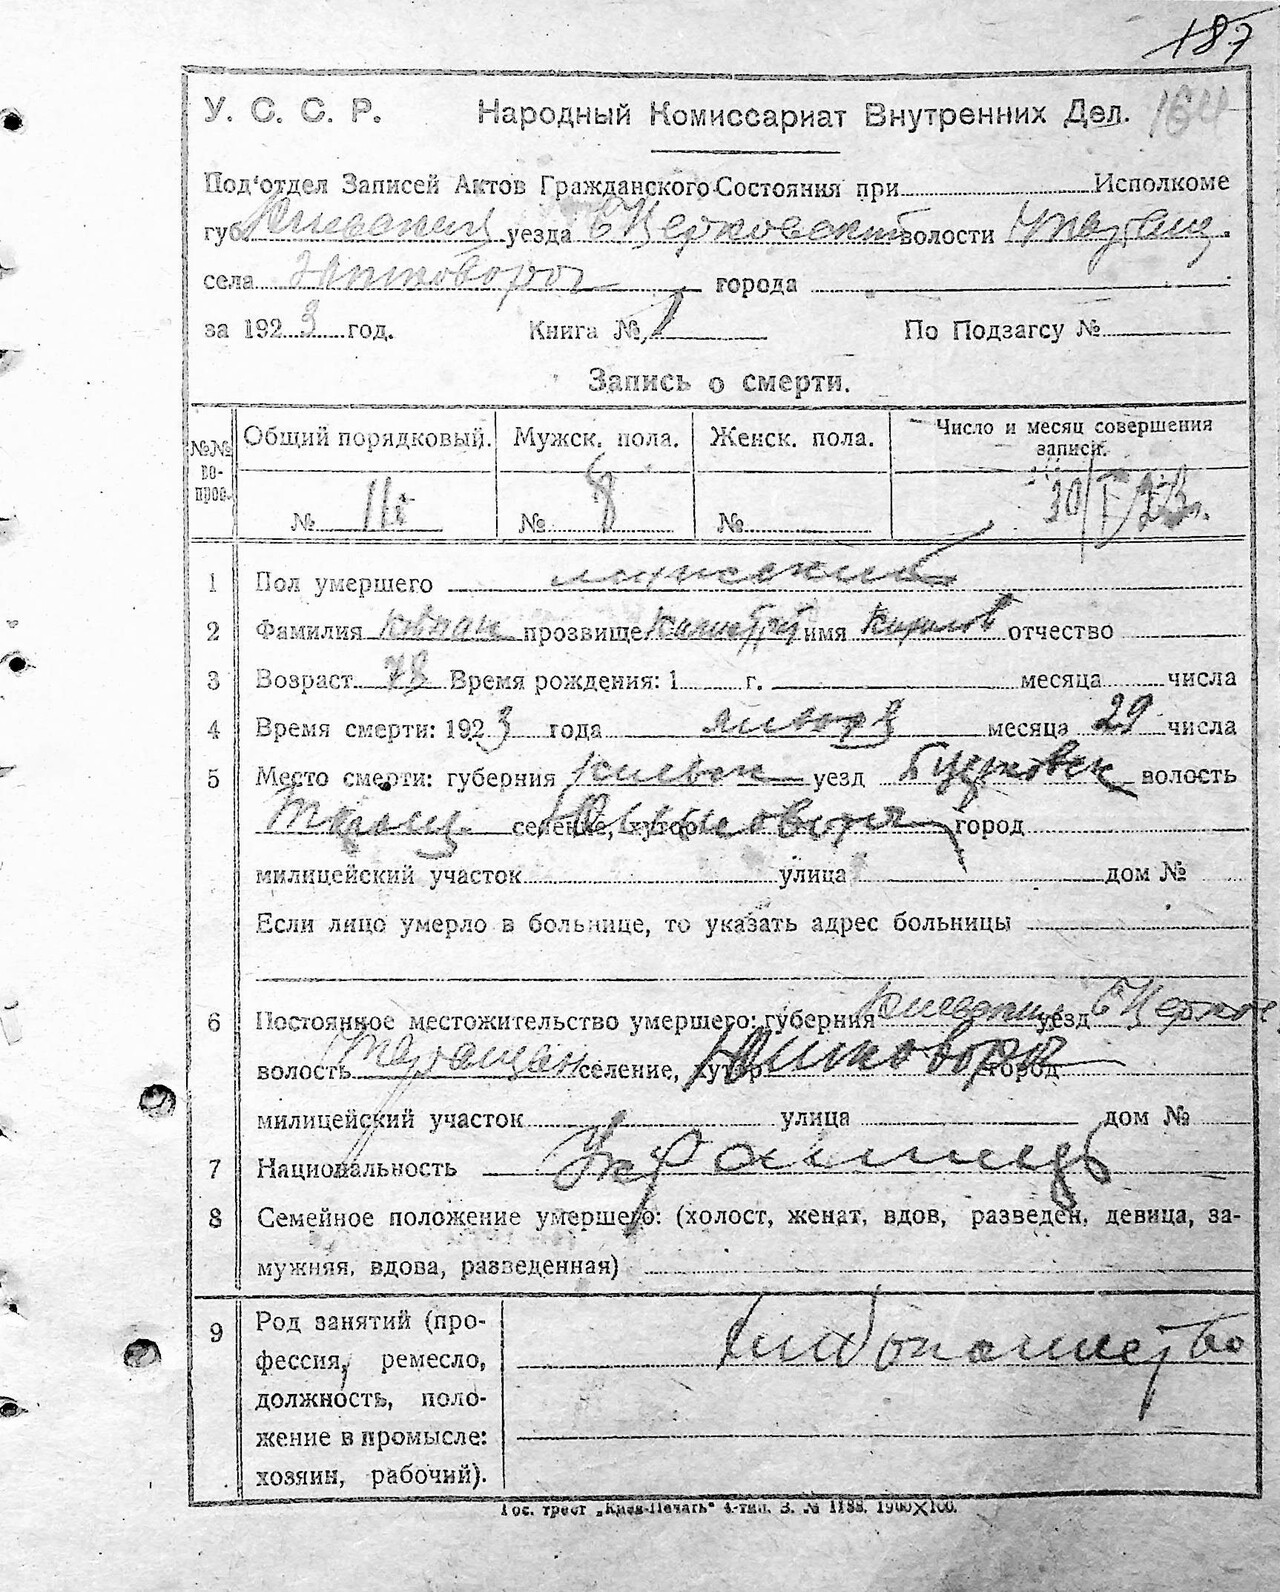 187
У. С. С. Р. Народный Комиссариат Внутренних Дел. 164
Под'отдел Записей Актов Гражданского Состояния при Исполкоме
губ. уезда Б Церковск волости
села города
за 1923 год. Книга № 1 По Подзагсу №
Запись о смерти.
№№ вопрос. Общий порядковый. Мужск. пола. Женск. пола. Число и месяц совершения записи.
№ № 8 № 30/I 23
1 Пол умершего мужский
2 Фамилия прозвище имя отчество
3 Возраст 78 Время рождения: 1 г. месяца числа
4 Время смерти: 1923 года января месяца 29 числа
5 Место смерти: губерния Киевск уезд волость
селение, хутор город
милицейский участок улица дом №
Если лицо умерло в больнице, то указать адрес больницы
6 Постоянное местожительство умершего: губерния уезд Б Церков
волость Таращан селение, хутор город
милицейский участок улица дом №
7 Национальность Украинець
8 Семейное положение умершего: (холост, женат, вдов, разведен, девица, за-
мужняя, вдова, разведенная)
9 Род занятий (про-
фессия, ремесло,
должность, поло-
жение в промысле:
хозяин, рабочий).
Гос. трест „Киев-Печать" 4-тип. З. № 1188. 1900X100.